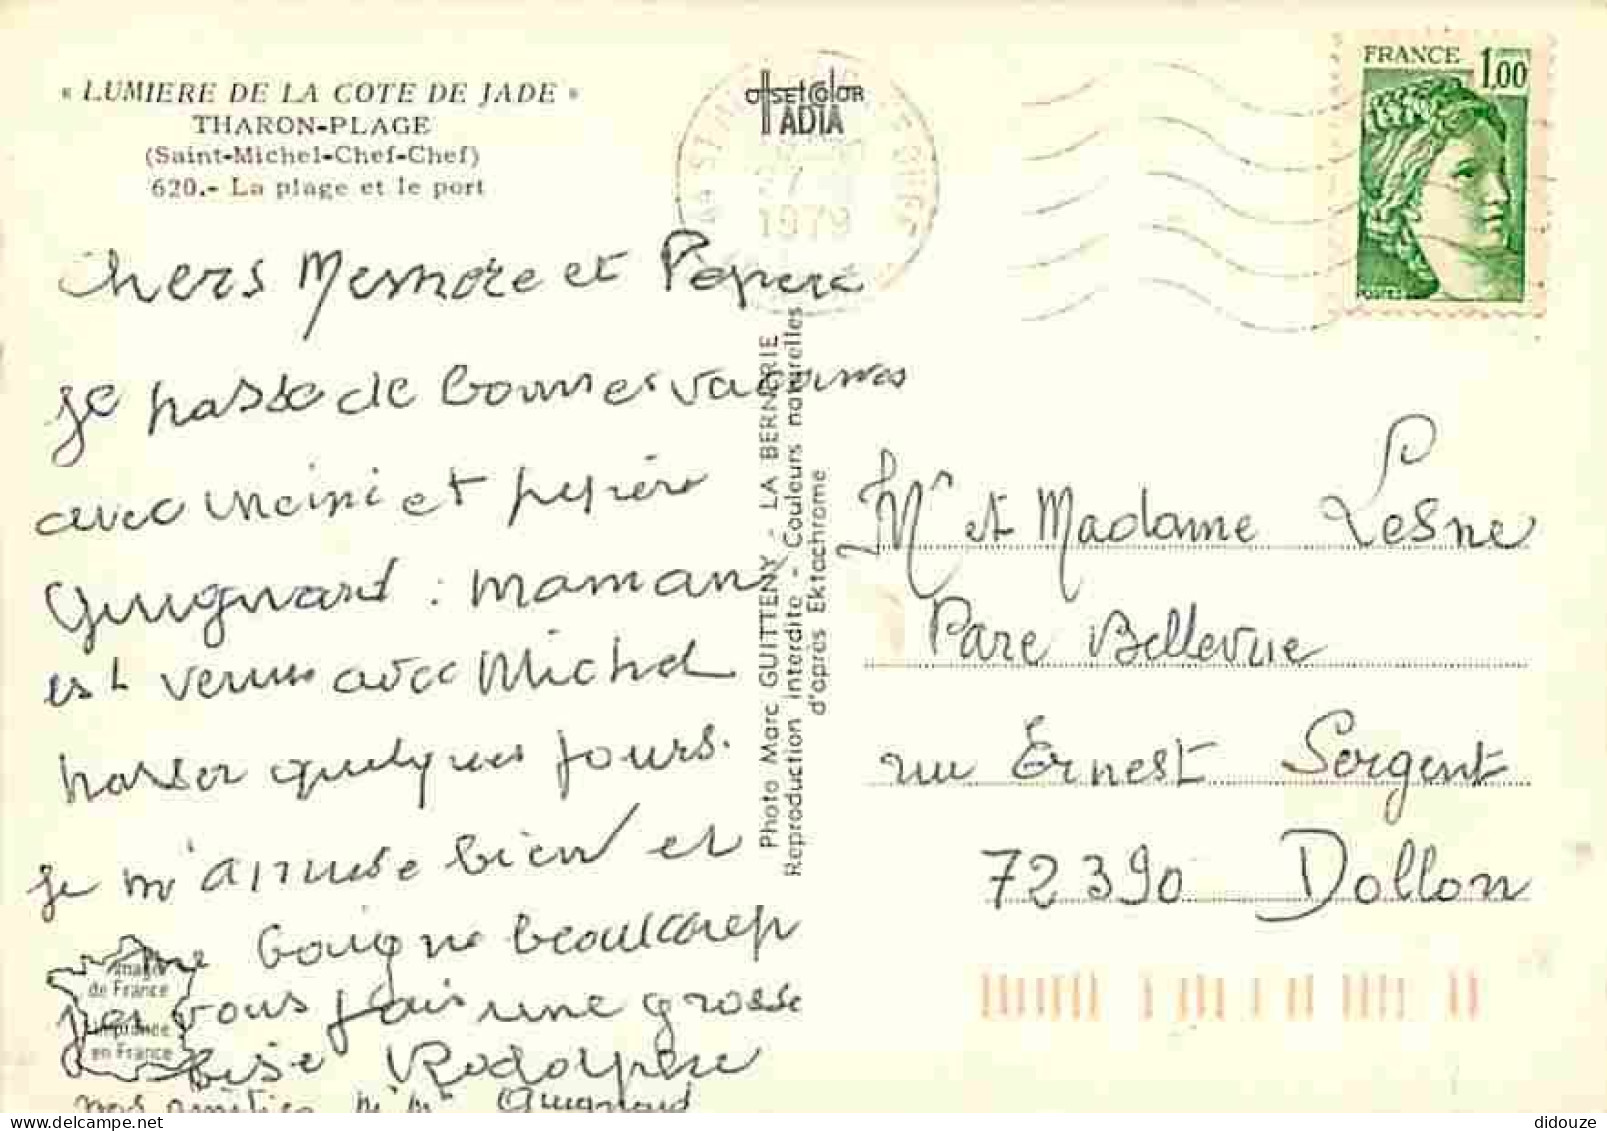 « LUMIERE DE LA COTE DE JADE »
THARON-PLAGE
(Saint-Michel-Chef-Chef)
620.- La plage et le port
offsetcolor
IADIA
1979
FRANCE 1,00
POSTES
Chers Mémère et Pépère
je passe de bonnes vacances
avec mémé et pépère
Guignard : maman
est venue avec Michel
passer quelques jours.
je m'amuse bien et
me baigne beaucoup
je vous fais une grosse
bise Rodolphe
nos amitiés M Me Guignard
Photo Marc GUITTENY - LA BERNERIE
Reproduction interdite - Couleurs naturelles
d'après Ektachrome
Mr et Madame Lesne
Parc Bellevue
rue Ernest Sergent
72390 Dollon
Images
de France
Imprimée
en France
didouze